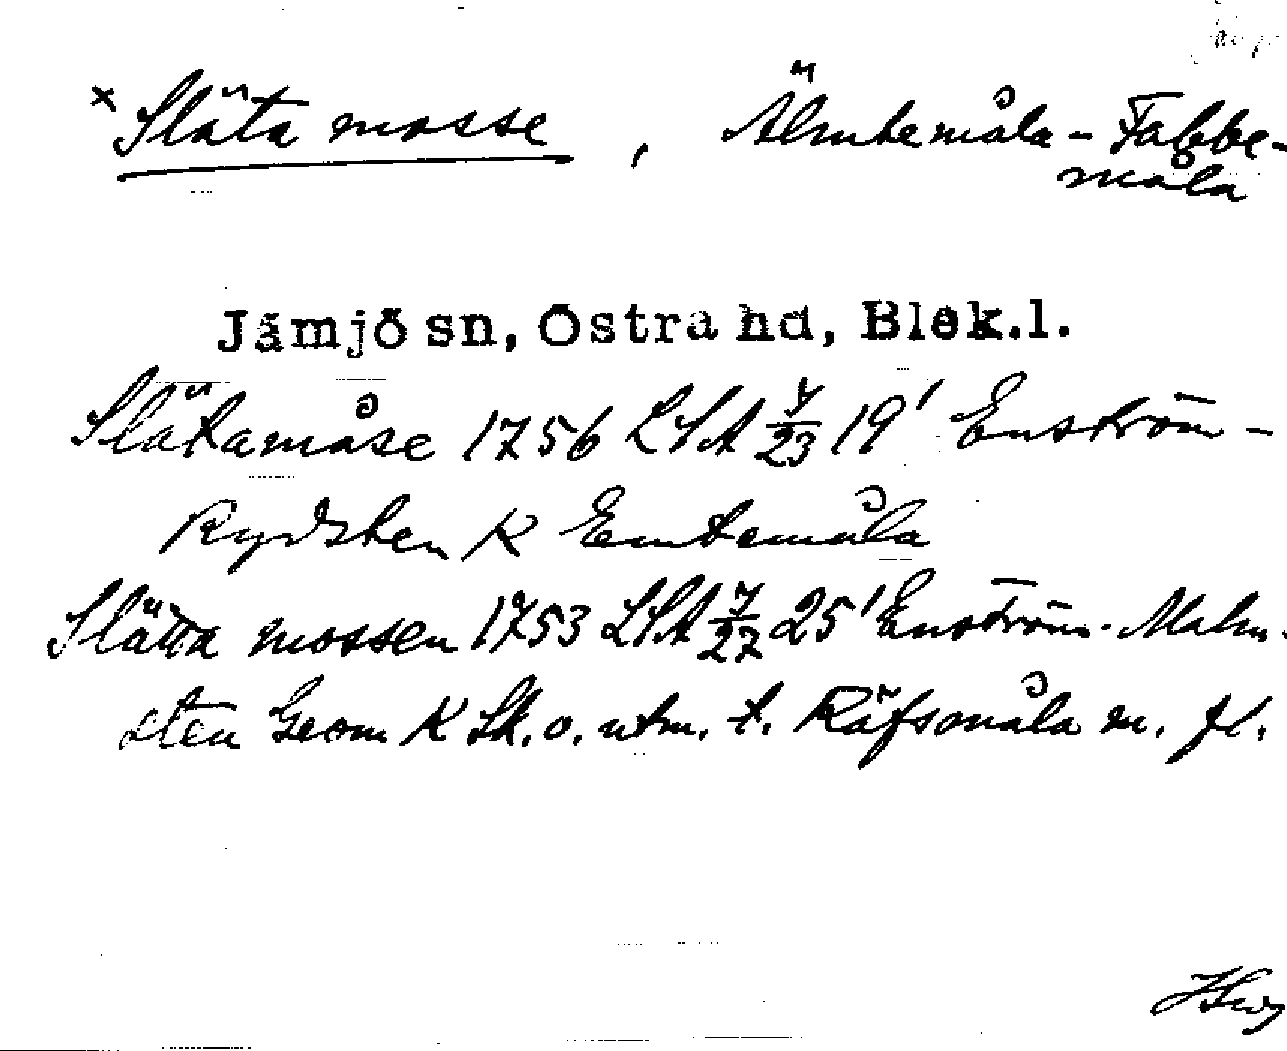 × Släta mosse, Älmtemåla - Fabbe-
måla
Jämjö sn, Östra hd, Blek.l.
Slätamåse 1756 LSA 7/23 19' Enström -
Rydsten K Emtemåla
Slätta mossen 1753 LSA 7/27 25' Enström - Malm-
sten Geom K Sk. o. utm. t. Räfsmåla m. fl.